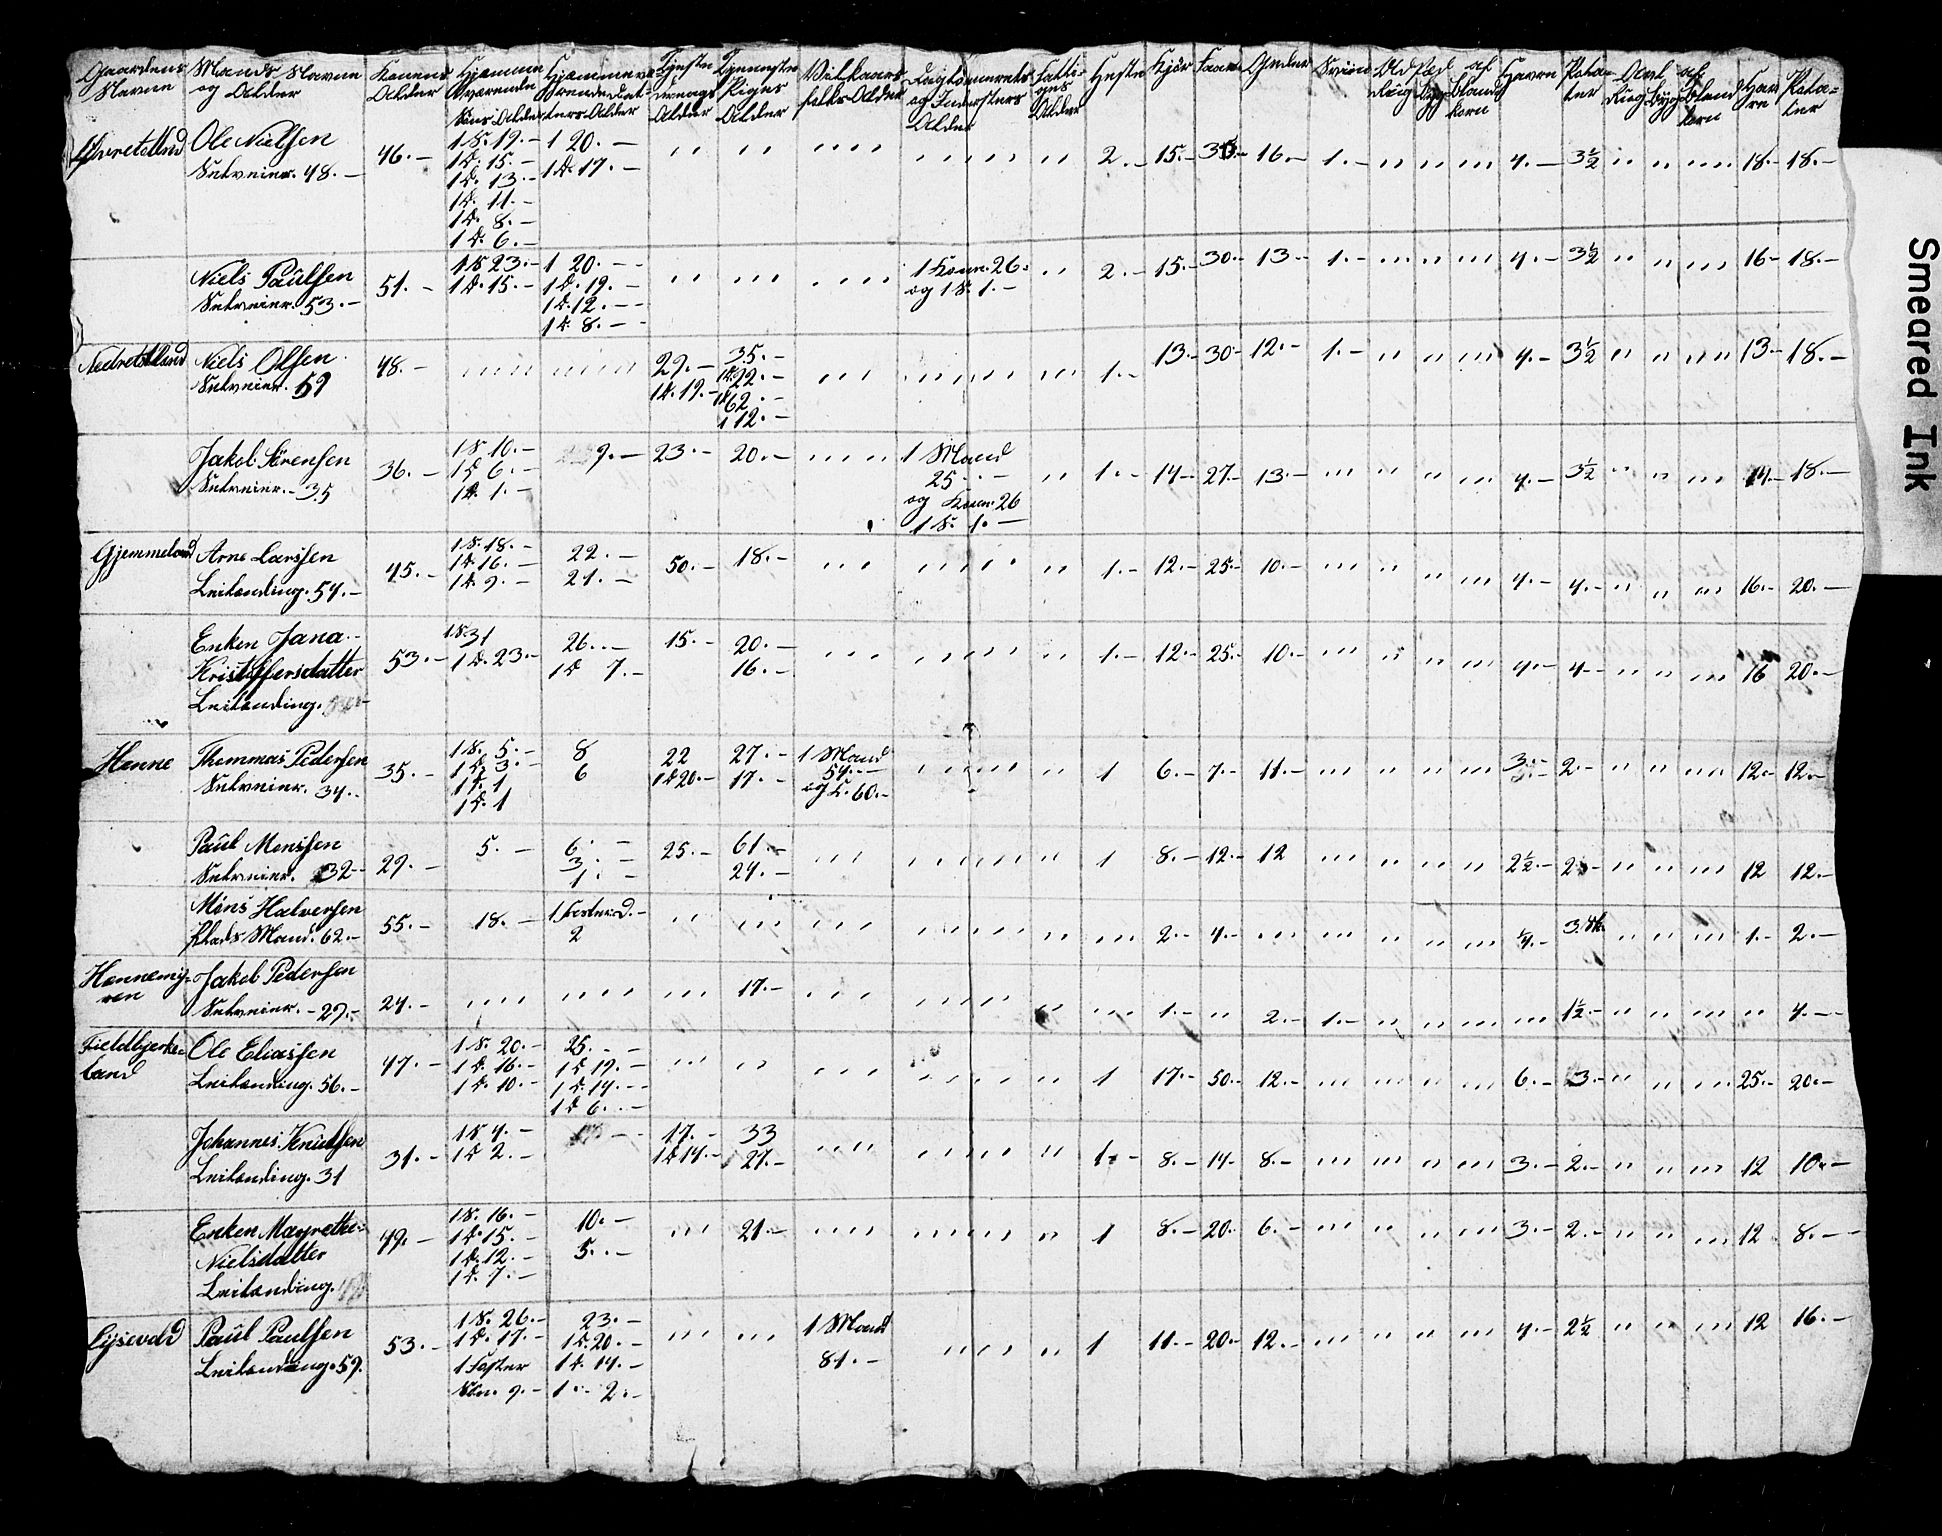 Gaardens Navne | Mands Navne og Alder | Konens Alder | Hjemme værende Søns Alder | Hjemmeværende Datters Alder | Tjeste drengs Alder | Tjenneste Piges Alder | Vilkaars folks Alder | Alder | Fattiges Alder | Heste | Kjør | Faar | Gjeder | Sviin | Rug | Byg | af blandkorn | Havre | Potater | Rug | byg | af blandkorn | Havre | Potater
Ole Nielsen Selveier. 48. | 46. | 1 S. 19. 1 d. 15. 1 d. 13. 1 d. 11. 1 d. 8. 1 d. 6. | 1 20. 1 d. 17. | 2. | 15. | 35. | 16. | 1. | 4. | 3½ | 18. | 18.
Niels Paulsen Selveier. 53. | 51. | 1 S 23. 1 d. 15. | 1 20. 1 d. 19. 1 d. 12. 1 d. 8. | 1 Kone. 26. og 1 S. 1. | 2. | 15. | 30. | 13 | 1. | 4. | 3½ | 16 | 18.
Niels Olsen Selveier. 59 | 48. | 29. 1 d. 19. | 35. 1d. 22. 1d 62. 1 12. | 1. | 13. | 30 | 12. | 1. | 4. | 3½ | 13 | 18.
Jakob Sørensen Selveier. 35 | 36. | 1 S 10. 1 d 6. 1 d. 1. | 9. | 23. | 20. | 1 Mand 25. og Kone. 26 1 S. 1. | 1. | 14 | 27. | 13. | 4. | 3½ | 14. | 18.
Gjemmeland | Arne Larssen Leilending. 54. | 45. | 1 S. 18. 1 d. 16. 1 d. 9. | 22. 21. | 50. | 18. | 1. | 12. | 25. | 10. | 4. | 4. | 16. | 20.
Enken Jana Kristoffersdatter Leilending. | 53. | 1 S. 31 1 d. 23. | 26. 1 d 7. | 15. | 20. 16. | 1. | 12. | 25. | 10. | 4. | 4 | 16 | 20.
Henne | Thommas Pedersen Selveier. 34. | 35. | 1 S. 5. 1 d. 3. 1 d. 1 1 d. 1 | 8 6 | 22 1d 20. | 27. 17. | 1 Mand 54. og K. 60. | 1 | 6. | 7. | 11. | 3. | 2. | 12. | 12.
Paul Monssen Selveier. 32 | 29. | 5. | 6. 3. 1. | 25. | 61. 24. | 1 | 8. | 12. | 12 | 2½. | 2. | 12 | 12.
Mons Halversen Plads Mand. 62. | 55. | 18. | 1 Foster d. 2 | 2. | 4. | 1. | 2.
Hennemyren | Jakob Pedersen Selveier. 29. | 24. | 17. | 1. | 2. | 1. | 1½. | 4.
Fieldbjerkeland | Ole Eliassen Leilending. 56. | 47. | 1 S. 20. 1 d. 16. 1 d. 10. | 25. 1 d 19. 1 d. 14. 1 d 6. | 1 | 17. | 50. | 12. | 6. | 3. | 25. | 20.
Johannes Knudsen Leilending. 31 | 31. | 1 S 4. 1 d 2. | 17. 1 d 14. | 33 27. | 1. | 8. | 14 | 8. | 3. | 2. | 12 | 10.
Enken Magrethe Nielsdatter Leilending. | 49. | 1 S. 16. 1 d. 15. 1 d. 12. 1 d. 7. | 10. 5. | 21. | 1 | 8. | 20. | 6. | 3. | 2. | 12 | 8.
Paul Paulsen Leilending. 59. | 53. | 1 S. 26. 1 d. 17. 1 Foster Søn. 9. | 23. 1 d. 20. 1 d. 14. 1 2. | 1 Mand 81. | 1 | 11. | 20. | 12. | 4. | 2½ | 12 | 16.
Smeared Ink